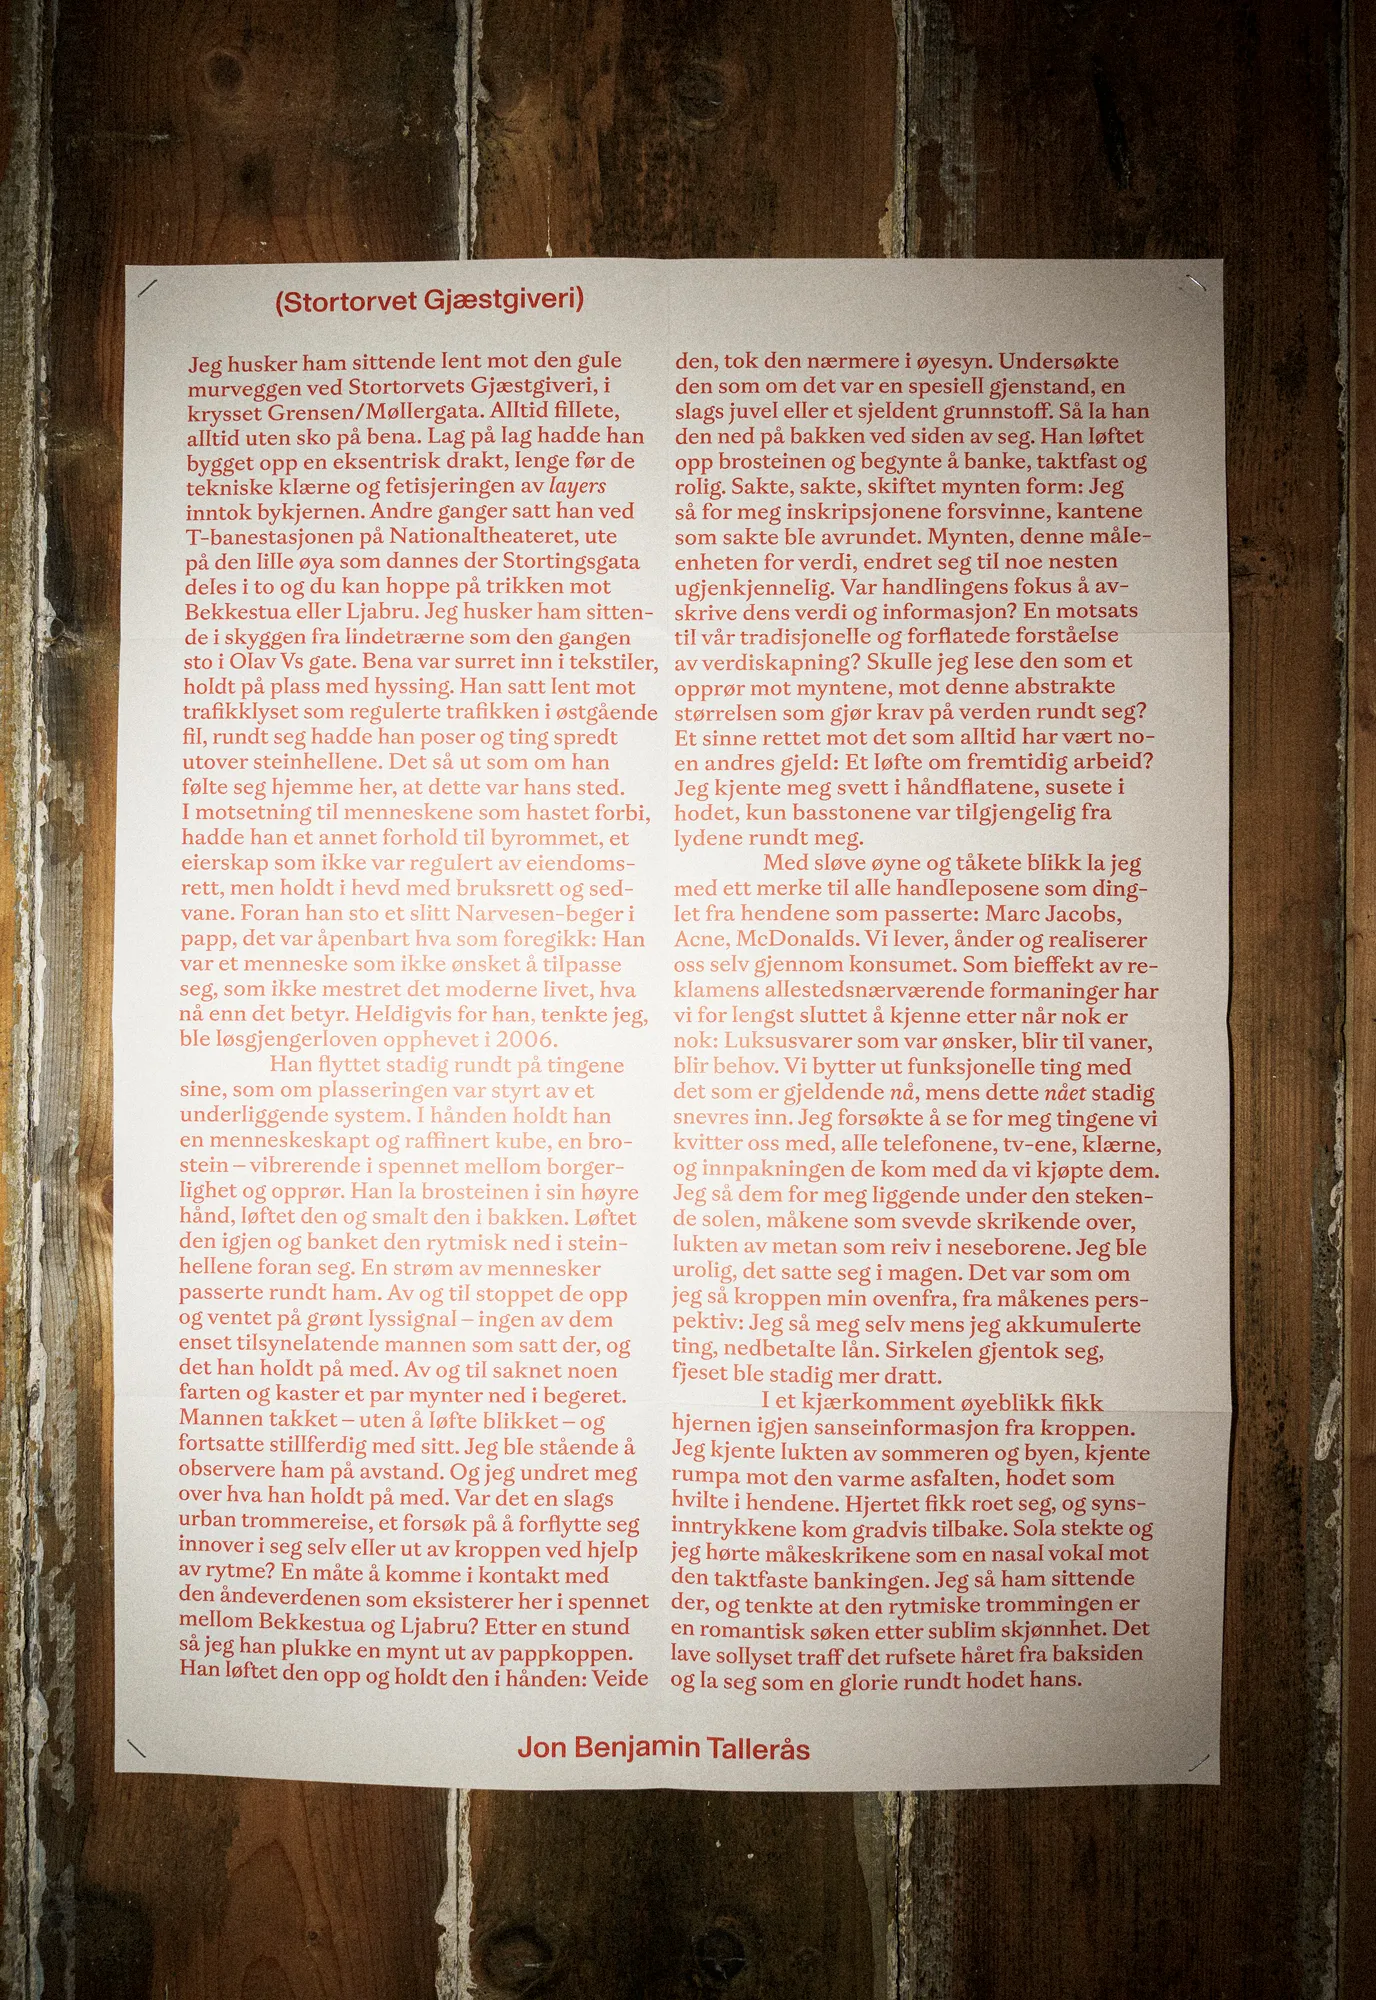 (Stortorvet Gjæstgiveri)
Jeg husker ham sittende lent mot den gule
murveggen ved Stortorvets Gjæstgiveri, i
krysset Grensen/Møllergata. Alltid fillete,
alltid uten sko på bena. Lag på lag hadde han
bygget opp en eksentrisk drakt, lenge før de
tekniske klærne og fetisjeringen av layers
inntok bykjernen. Andre ganger satt han ved
T-banestasjonen på Nationaltheateret, ute
på den lille øya som dannes der Stortingsgata
deles i to og du kan hoppe på trikken mot
Bekkestua eller Ljabru. Jeg husker ham sitten-
de i skyggen fra lindetrærne som den gangen
sto i Olav Vs gate. Bena var surret inn i tekstiler,
holdt på plass med hyssing. Han satt lent mot
trafikklyset som regulerte trafikken i østgående
fil, rundt seg hadde han poser og ting spredt
utover steinhellene. Det så ut som om han
følte seg hjemme her, at dette var hans sted.
I motsetning til menneskene som hastet forbi,
hadde han et annet forhold til byrommet, et
eierskap som ikke var regulert av eiendoms-
rett, men holdt i hevd med bruksrett og sed-
vane. Foran han sto et slitt Narvesen-beger i
papp, det var åpenbart hva som foregikk: Han
var et menneske som ikke ønsket å tilpasse
seg, som ikke mestret det moderne livet, hva
nå enn det betyr. Heldigvis for han, tenkte jeg,
ble løsgjengerloven opphevet i 2006.
Han flyttet stadig rundt på tingene
sine, som om plasseringen var styrt av et
underliggende system. I hånden holdt han
en menneskeskapt og raffinert kube, en bro-
stein – vibrerende i spennet mellom borger-
lighet og opprør. Han la brosteinen i sin høyre
hånd, løftet den og smalt den i bakken. Løftet
den igjen og banket den rytmisk ned i stein-
hellene foran seg. En strøm av mennesker
passerte rundt ham. Av og til stoppet de opp
og ventet på grønt lyssignal – ingen av dem
enset tilsynelatende mannen som satt der, og
det han holdt på med. Av og til saknet noen
farten og kaster et par mynter ned i begeret.
Mannen takket – uten å løfte blikket – og
fortsatte stillferdig med sitt. Jeg ble stående å
observere ham på avstand. Og jeg undret meg
over hva han holdt på med. Var det en slags
urban trommereise, et forsøk på å forflytte seg
innover i seg selv eller ut av kroppen ved hjelp
av rytme? En måte å komme i kontakt med
den åndeverdenen som eksisterer her i spennet
mellom Bekkestua og Ljabru? Etter en stund
så jeg han plukke en mynt ut av pappkoppen.
Han løftet den opp og holdt den i hånden: Veide
den, tok den nærmere i øyesyn. Undersøkte
den som om det var en spesiell gjenstand, en
slags juvel eller et sjeldent grunnstoff. Så la han
den ned på bakken ved siden av seg. Han løftet
opp brosteinen og begynte å banke, taktfast og
rolig. Sakte, sakte, skiftet mynten form: Jeg
så for meg inskripsjonene forsvinne, kantene
som sakte ble avrundet. Mynten, denne måle-
enheten for verdi, endret seg til noe nesten
ugjenkjennelig. Var handlingens fokus å av-
skrive dens verdi og informasjon? En motsats
til vår tradisjonelle og forflatede forståelse
av verdiskapning? Skulle jeg lese den som et
opprør mot myntene, mot denne abstrakte
størrelsen som gjør krav på verden rundt seg?
Et sinne rettet mot det som alltid har vært no-
en andres gjeld: Et løfte om fremtidig arbeid?
Jeg kjente meg svett i håndflatene, susete i
hodet, kun basstonene var tilgjengelig fra
lydene rundt meg.
Med sløve øyne og tåkete blikk la jeg
med ett merke til alle handleposene som ding-
let fra hendene som passerte: Marc Jacobs,
Acne, McDonalds. Vi lever, ånder og realiserer
oss selv gjennom konsumet. Som bieffekt av re-
klamens allestedsnærværende formaninger har
vi for lengst sluttet å kjenne etter når nok er
nok: Luksusvarer som var ønsker, blir til vaner,
blir behov. Vi bytter ut funksjonelle ting med
det som er gjeldende nå, mens dette nået stadig
snevres inn. Jeg forsøkte å se for meg tingene vi
kvitter oss med, alle telefonene, tv-ene, klærne,
og innpakningen de kom med da vi kjøpte dem.
Jeg så dem for meg liggende under den steken-
de solen, måkene som svevde skrikende over,
lukten av metan som reiv i neseborene. Jeg ble
urolig, det satte seg i magen. Det var som om
jeg så kroppen min ovenfra, fra måkenes pers-
pektiv: Jeg så meg selv mens jeg akkumulerte
ting, nedbetalte lån. Sirkelen gjentok seg,
fjeset ble stadig mer dratt.
I et kjærkomment øyeblikk fikk
hjernen igjen sanseinformasjon fra kroppen.
Jeg kjente lukten av sommeren og byen, kjente
rumpa mot den varme asfalten, hodet som
hvilte i hendene. Hjertet fikk roet seg, og syns-
inntrykkene kom gradvis tilbake. Sola stekte og
jeg hørte måkeskrikene som en nasal vokal mot
den taktfaste bankingen. Jeg så ham sittende
der, og tenkte at den rytmiske trommingen er
en romantisk søken etter sublim skjønnhet. Det
lave sollyset traff det rufsete håret fra baksiden
og la seg som en glorie rundt hodet hans.
Jon Benjamin Tallerås